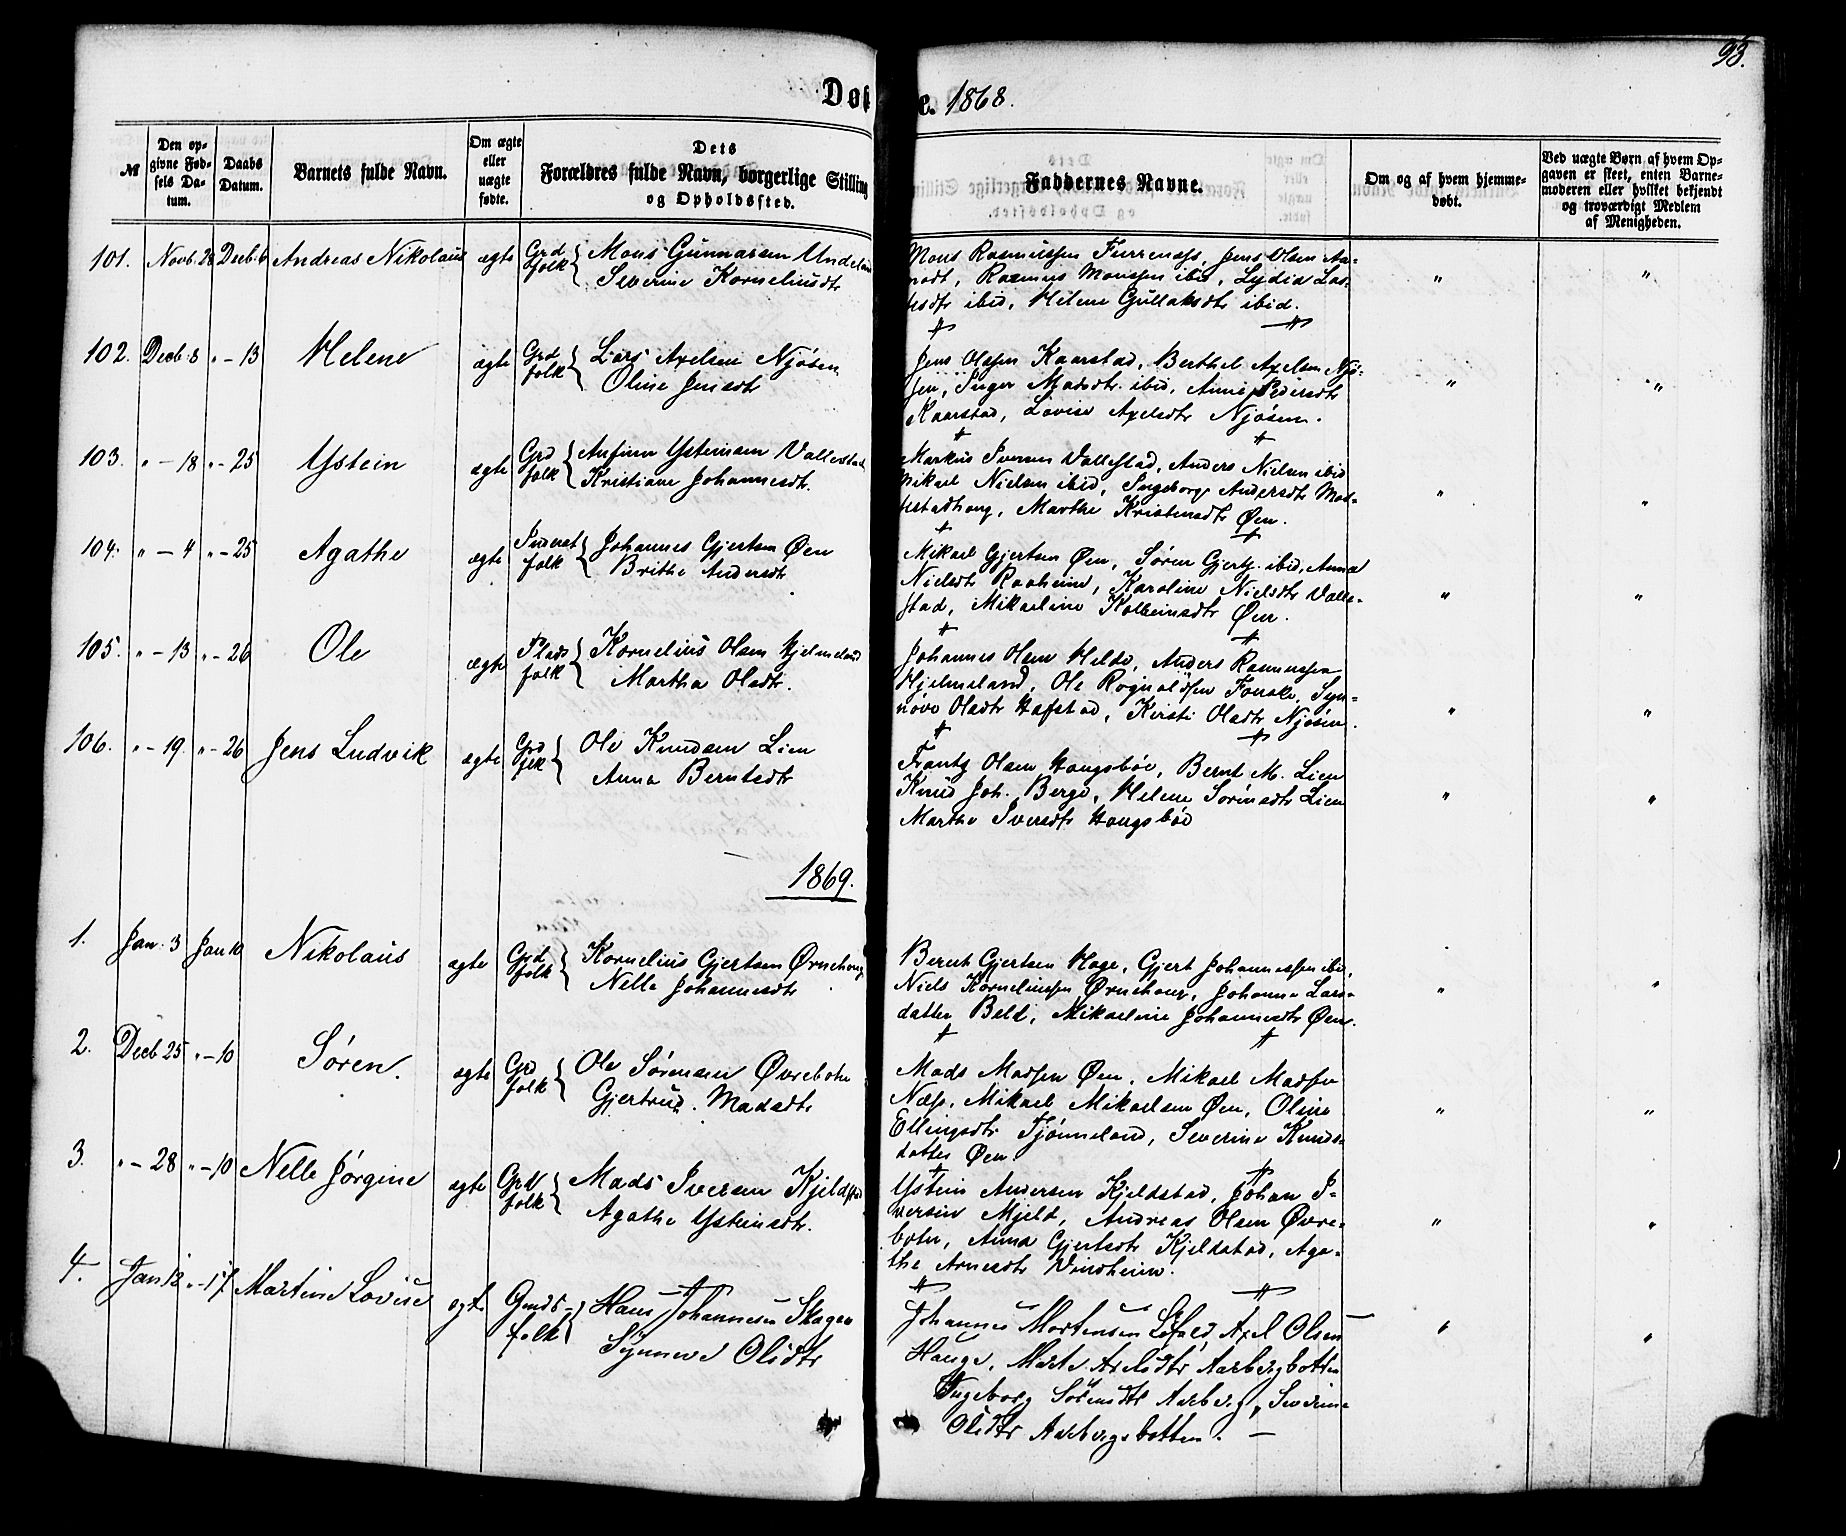 93.
Døb
e. 1868.
№
Den op-
givne Fød-
sels Da-
tum.
Daabs
Datum.
Barnets fulde Navn.
Om ægte
eller
uægte
fødte.
Dets
Forældres fulde Navn, borgerlige Stilling
og Opholdssted.
Faddernes Navne.
Om og af hvem hjemme-
døbt.
Ved uægte Børn af hvem Op-
gaven er skeet, enten Barne-
moderen eller hvilket bekjendt
og troværdigt Medlem
af Menigheden.
101. Novb. 28 Decb. 6 Andreas Nikolaus ægte Grd folk { Mons Gunnarsen Undeland
Severine Korneliusdtr
Mons Rasmussen Furrenæss, Jens Olsen Aa-
Rasmus Monssen ibid, Lydia Las-
ibid, Helene Gullaksdtr ibid.
102. Decb. 8 " - 13 Helene ægte Grd folk { Lars Axelsen Njøsen
Oline Jensdtr
Jens Olssen Kaarstad, Berthel Axelsen Njø-
sen, Inger Madsdtr. ibid, Anne Pedersdtr
Kaarstad, Lovise Axelsdtr Njøsen.
103. " - 18 " - 25 Ystein ægte Grd folk { Anfinn Ysteinsen Vallestad
Kristiane Johannesdtr.
Markus Iversen Vallestad, Anders Nielsen ibid
Mikael Nielsen ibid, Ingeborg Andersdtr
Marthe Kristensdtr Øen.
104. " - 4 " - 25 Agathe ægte folk { Johannes Gjertsen Øen
Brithe Andersdtr
Mikael Gjertsen Øen, Søren Gjerts. ibid, Anna
Nielsdtr Raaheim, Karoline Nielsdtr Valle-
stad, Mikaeline Kolbeinsdtr Øen.
105. " - 13 " - 26 Ole ægte Plads folk { Kornelius Olsen Hjelmeland
Martha Olsdtr.
Johannes Olsen Helde, Anders Rasmussen
Hjelmeland, Ole Rognaldsen Fonske, Syn-
nøve Olsdtr Hafstad, Kirsti Olsdtr Njøsen.
106. " - 19. " - 26 Jens Ludvik ægte Grd folk { Ole Knudsen Lien
Anna Berntsdtr
Frantz Olsen Haugsbøe, Bernt M. Lien
Knud Joh. Berge, Helene Sørensdtr Lien
Marthe Iversdtr Haugsbøe
1869.
1. Jan. 3 Jan 10 Nikolaus ægte Grd folk { Kornelius Gjertsen Ørnehoug
Nelle Johannesdtr
Bernt Gjertsen Hage, Gjert Johannessen ibid,
Niels Korneliussen Ørnehoug, Johanne Lars-
datter Beld, Mikaeline Johannesdtr Øen.
2. Decb 25 " - 10 Søren. ægte Grd folk { Ole Sørensen Øvreboten
Gjertrud Madsdtr
Mads Madsen Øen, Mikael Madsen
Næss, Mikael Mikaelsen Øen, Oline
Ellingsdtr Tjønneland, Severine Knuds-
datter Øen.
3. " - 28 " - 10 Nelle Jørgine ægte Grd folk { Mads Iversen Kjeldstad
Agathe Ysteinsdtr.
Ystein Andersen Kjeldstad, Johan I-
versen Mjeld, Andreas Olsen Øvre-
boten, Anna Gjertsdtr Kjeldstad, Aga-
the Arnesdtr Vindheim.
4. Jan 12 " - 17 Martine Lovise ægt. Gaards- folk { Hans Johannesen Skagen
Synneve Olsdtr
Johannes Mortensen Løfald, Axel Olsen
Hauge, Marte Axelsdtr Aarbergbotten
Ingeborg Sørensdtr Aarberg, Severine
Olsdtr Aarbergsbotten.